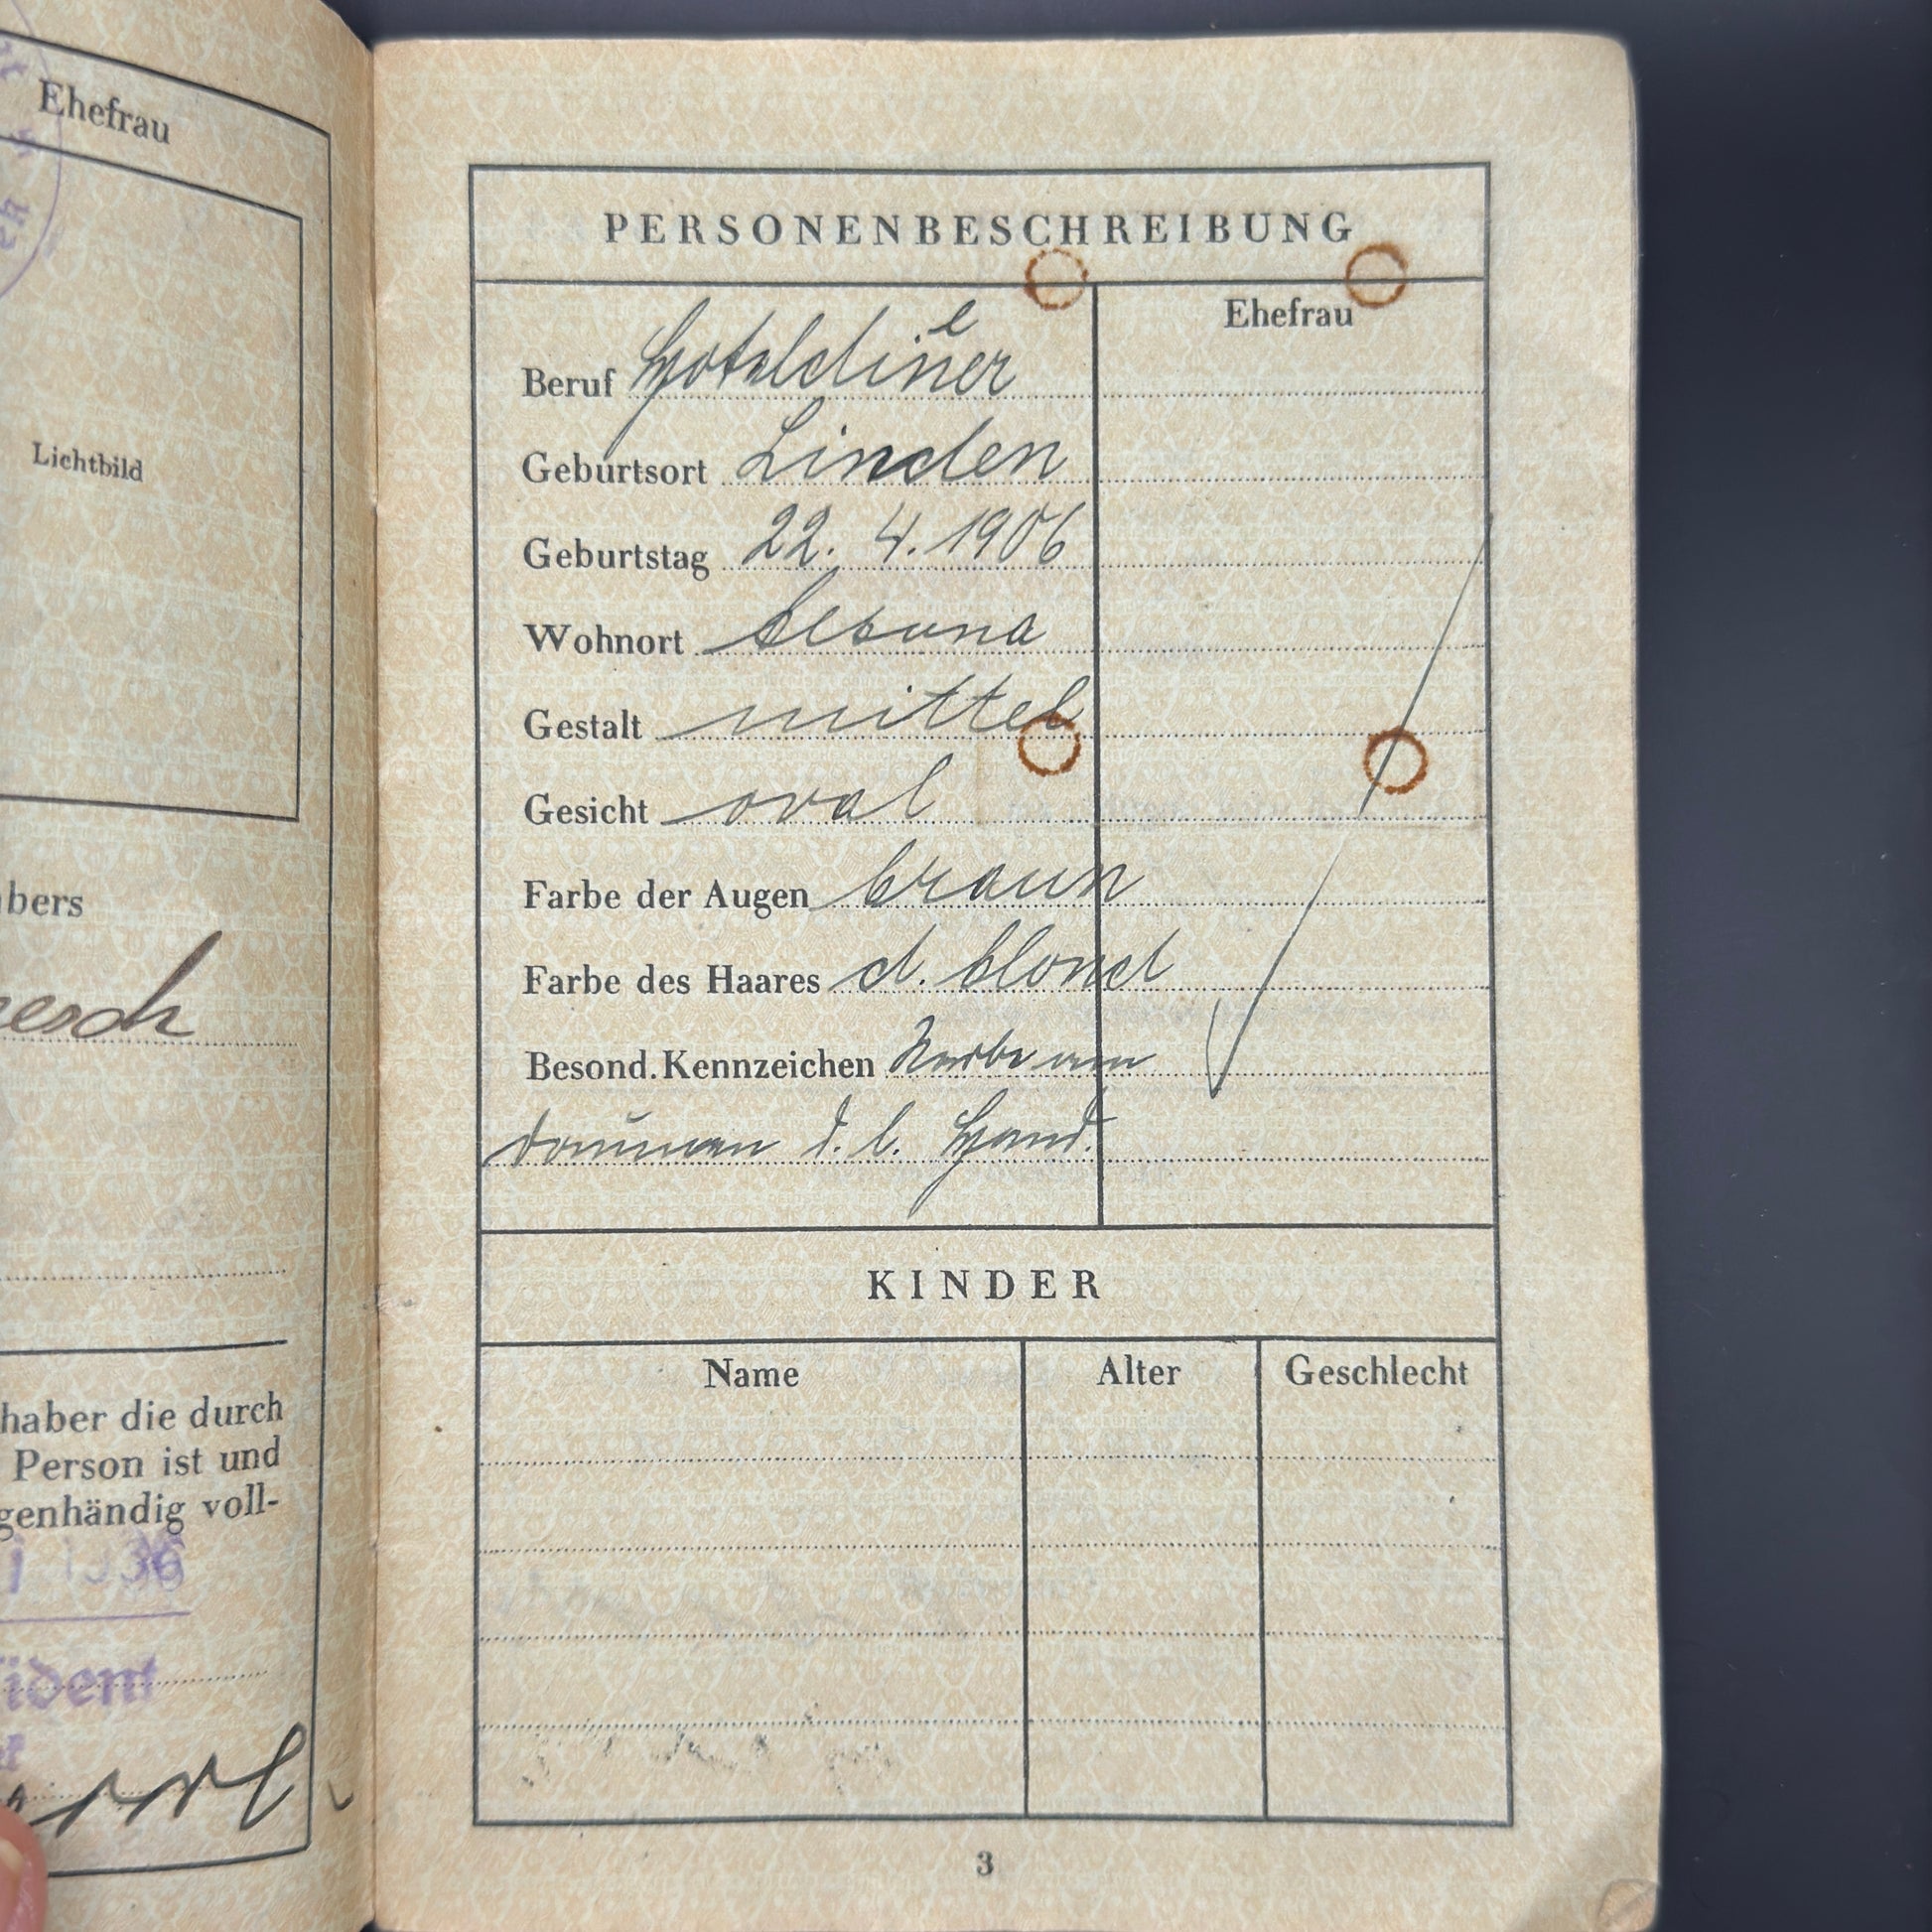 Ehefrau
Lichtbild
abers
eesch
haber die durch
Person ist und
genhändig voll-
1936
ident
PERSONENBESCHREIBUNG
Ehefrau
Beruf Hoteldiener
Geburtsort Linden
Geburtstag 22. 4. 1906
Wohnort
Gestalt mittel
Gesicht oval
Farbe der Augen braun
Farbe des Haares d. blond
Besond. Kennzeichen Narbe am
Daumen d. l. Hand.
KINDER
Name Alter Geschlecht
3